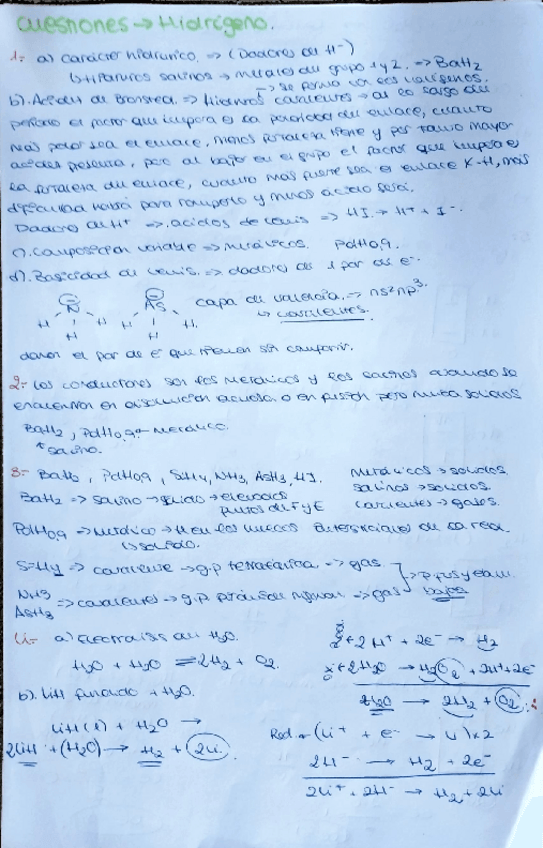 Cuestiones → Hidrógeno.
1.- a) Carácter hidrúrico. ⇒ (Dadores de H⁻)
↳ Hidruros salinos → metales del grupo 1 y 2. ⇒ BaH2
→ se forma con los halógenos.
b). Acidez de Bronsted. ⇒ Hidruros covalentes → a lo largo del
periodo el factor que impera es la polaridad del enlace, cuanto
más polar sea el enlace, menos fortaleza tiene y por tanto mayor
acidez presenta, pero al bajar en el grupo el factor que impera es
la fortaleza del enlace, cuanto más fuerte sea el enlace X-H, más
dificultad habrá para romperlo y menos ácido será.
Dadores de H⁺ ⇒ ácidos de Lewis ⇒ HI → H⁺ + I⁻.
c). Composición variable ⇒ metálicos. PdH0,9.
d). Basicidad de Lewis. ⇒ dadores de 1 par de e⁻.
N As capa de valencia. ⇒ ns²np³.
H H H H
H H
↳ covalentes.
donan el par de e⁻ que tienen sin compartir.
2.- Los conductores son los metálicos y los salinos cuando se
encuentran en disolución acuosa o en fusión pero nunca sólidos
BaH2, PdH0,9 → metálico.
↑ salino.
3.- BaH2, PdH0,9, SnH4, NH3, AsH3, HI.
metálicos → sólidos.
salinos → sólidos.
covalentes → gases.
BaH2 ⇒ salino → sólido → elevados
puntos de F y E
PdH0,9 ⇒ metálico → H en los huecos intersticiales de la red.
↳ sólido.
SnH4 ⇒ covalente → g.p tetraédrica ⇒ gas
NH3
AsH3 ⇒ covalentes → g.p pirámide trigonal ⇒ gas
→ p.fus y ebull.
bajos
4.- a) Electrolisis del H2O.
H2O + H2O ⇌ 2H2 + O2.
2 × 2H⁺ + 2e⁻ → H2
2H2O → 2H2 + O2
b). LiH fundido + H2O.
LiH(l) + H2O →
2LiH + (H2O) → H2 + 2Li
Red. → (Li⁺ + e⁻ → Li) × 2
2H⁻ → H2 + 2e⁻
2Li⁺ + 2H⁻ → H2 + 2Li